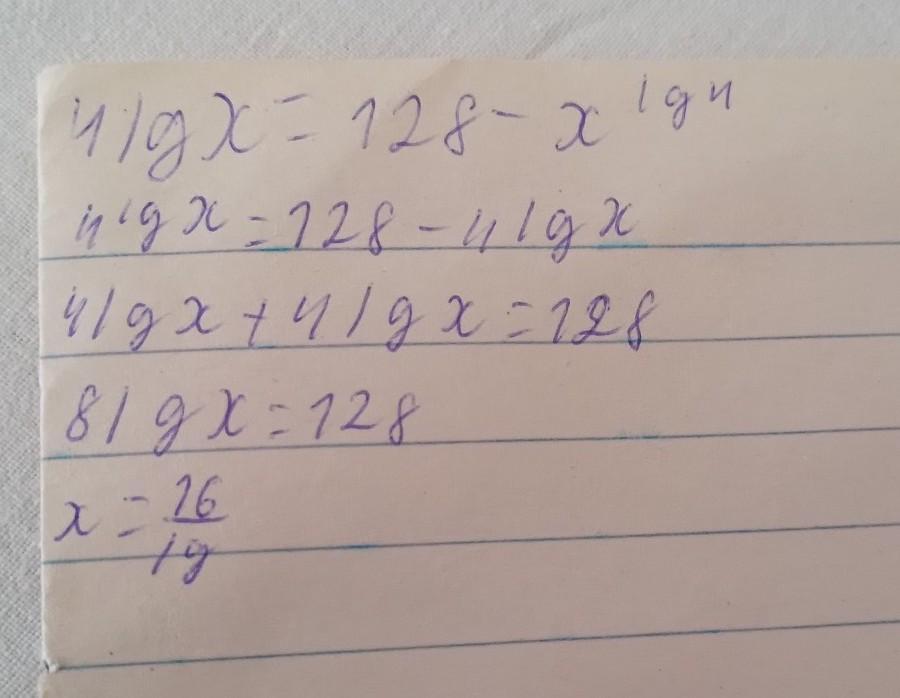 4lgx = 128 - x^lg4
4^lgx = 128 - 4lgx
4lgx + 4lgx = 128
8lgx = 128
x = 16/lg